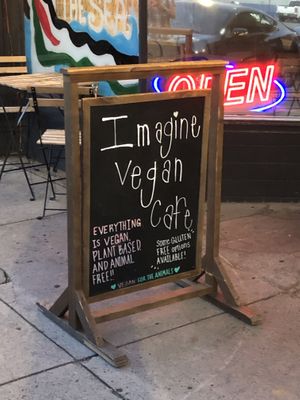 THE SEA
OPEN
Imagine
Vegan
Cafe
EVERYTHING
IS VEGAN,
PLANT BASED
AND ANIMAL
FREE!!
SOME GLUTEN
FREE OPTIONS
AVAILABLE!
VEGAN FOR THE ANIMALS